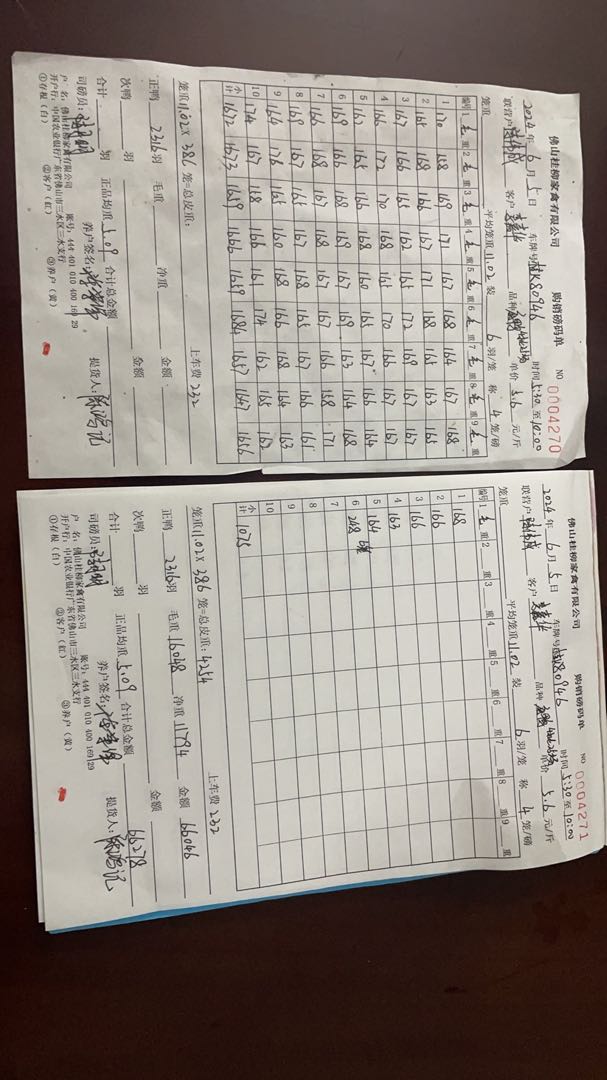 佛山桂柳家禽有限公司 购销磅码单 NO 0004270
2024年 6月 5日 车牌号 80946 时间 5:30 至 10:00
联营户 客户 品种 单价 5.6 元/斤
笼重 平均笼重 11.02 装 6 羽/笼 称 4 笼/磅
编号 1 毛 重 2 毛 重 3 毛 重 4 毛 重 5 毛 重 6 毛 重 7 毛 重 8 毛 重 9 毛 重
1 170 158 169 171 167 168 164 167 168
2 165 168 166 167 171 168 165 163 165
3 167 166 165 162 165 172 169 167 167
4 166 172 170 168 165 170 166 167 167
5 162 165 166 168 160 165 167 166 164
6 169 166 168 169 167 169 163 164 168
7 166 168 167 168 167 167 166 158 171
8 169 167 165 167 168 165 167 166 161
9 164 176 165 160 168 166 168 164 163
10 174 167 158 166 161 174 162 165 162
小计 1672 1673 1659 1666 1659 1684 1657 1647 1656
笼重 11.02 × 386 笼=总皮重: 上车费 232
正鸭 2316 羽 毛重 净重 金额
次鸭 羽 金额
合计 羽 正品均重 5.09 合计总金额
司磅员: 养户签名: 提货人:
户 名:佛山桂柳家禽有限公司 账号:444 401 010 400 169 29
开户行:中国农业银行广东省佛山市三水区三水支行
①存根(白) ②客户(红) ③养户(黄)
佛山桂柳家禽有限公司 购销磅码单 NO 0004271
2024年 6月 5日 车牌号 80946 时间 5:30 至 10:00
联营户 客户 品种 单价 5.6 元/斤
笼重 平均笼重 11.02 装 6 羽/笼 称 4 笼/磅
编号 1 毛 重 2 重 3 重 4 重 5 重 6 重 7 重 8 重 9 重
1 168
2 166
3 166
4 163
5 164
6 248 6笼
7
8
9
10
小计 1075
笼重 11.02 × 386 笼=总皮重: 4254 上车费 232
正鸭 2316 羽 毛重 16048 净重 11794 金额 66046
次鸭 羽 金额
合计 羽 正品均重 5.09 合计总金额 66278
司磅员: 养户签名: 提货人:
户 名:佛山桂柳家禽有限公司 账号:444 401 010 400 169 29
开户行:中国农业银行广东省佛山市三水区三水支行
①存根(白) ②客户(红) ③养户(黄)